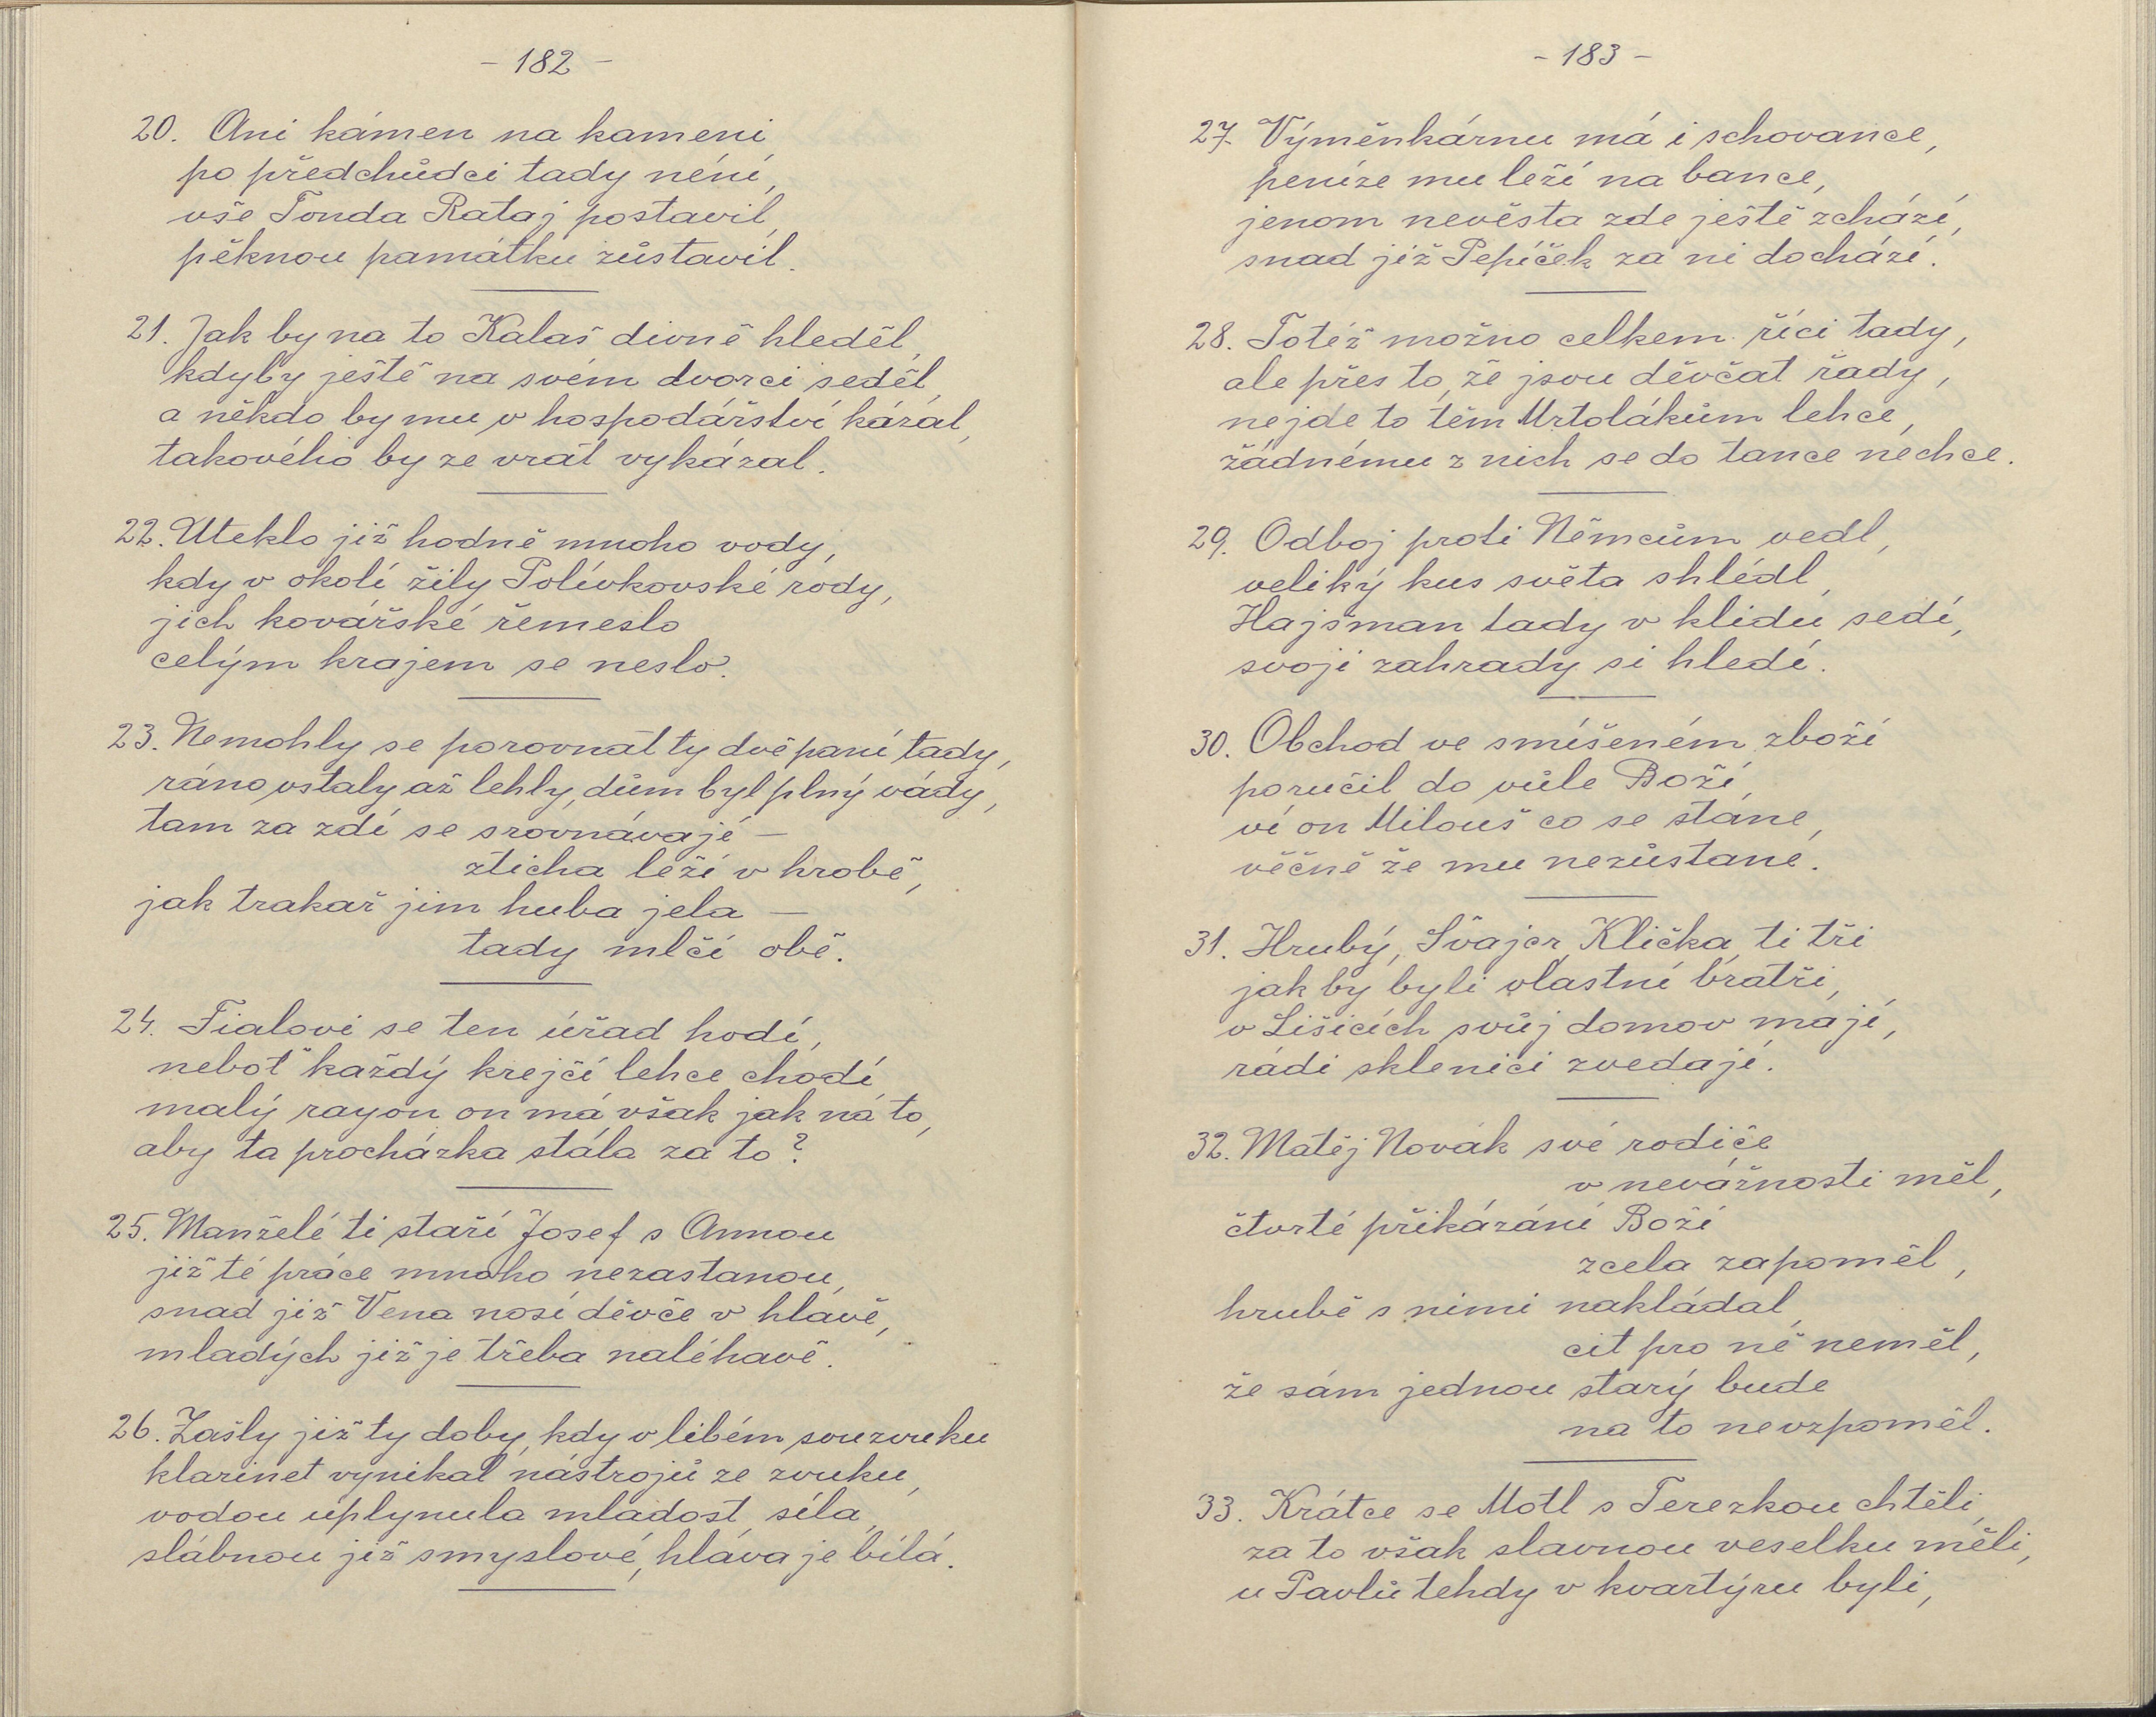 - 182 -
20. Ani kámen na kameni
po předchůdci tady néní,
vše Tonda Rataj postavil,
pěknou památku zůstavil.
21. Jak by na to Kalaš divně hleděl,
kdyby ještě na svém dvorci seděl,
a někdo by mu v hospodářství kázál,
takového by ze vrát vykázal.
22. Uteklo již hodně mnoho vody,
kdy v okolí žily Polívkovské rody,
jich kovářské řemeslo
celým krajem se neslo.
23. Nemohly se porovnat ty dvě paní tady,
ráno vstaly až lehly, dům byl plný vády,
tam za zdí se srovnávají —
zticha leží v hrobě,
jak trakař jim huba jela —
tady mlčí obě.
24. Fialovi se ten úřad hodí,
neboť každý krejčí lehce chodí
malý rayon on má však jak ná to,
aby ta procházka stála za to?
25. Manželé ti staří Josef s Annou
již té práce mnoho nezastanou,
snad již Vena nosí děvče v hlavě,
mladých již je třeba naléhavě.
26. Zašly již ty doby, kdy v libém souzvuku
klarinet vynikal nástrojů ze zvuku,
vodou uplynula mladost, síla,
slábnou již smyslové, hláva je bílá.
- 183 -
27. Výměnkárnu má i schovance,
peníze mu leží na bance,
jenom nevěsta zde ještě zchází,
snad již Pepíček za ni dochází.
28. Totéž možno celkem říci tady,
ale přes to, že jsou děvčat řady,
nejde to těm Mrtolákům lehce,
žádnému z nich se do tance nechce.
29. Odboj proti Němcům vedl,
veliký kus světa shlédl,
Hajšman tady v klidu sedí,
svojí zahrady si hledí.
30. Obchod ve smíšeném zboží
poručil do vůle Boží,
ví on Milouš co se stane,
věčně že mu nezůstane.
31. Hrubý, Švajcr, Klička, ti tři
jak by byli vlastní bratři,
v Lišicích svůj domov mají,
rádi sklenici zvedají.
32. Matěj Novák své rodiče
v nevážnosti měl,
čtvrté přikázání Boží
zcela zapoměl,
hrubě s nimi nakládal,
cit pro ně neměl,
že sám jednou starý bude
na to nevzpoměl.
33. Krátce se Motl s Terezkou chtěli,
za to však slavnou veselku měli,
u Pavlů tehdy v kvartýru byli,